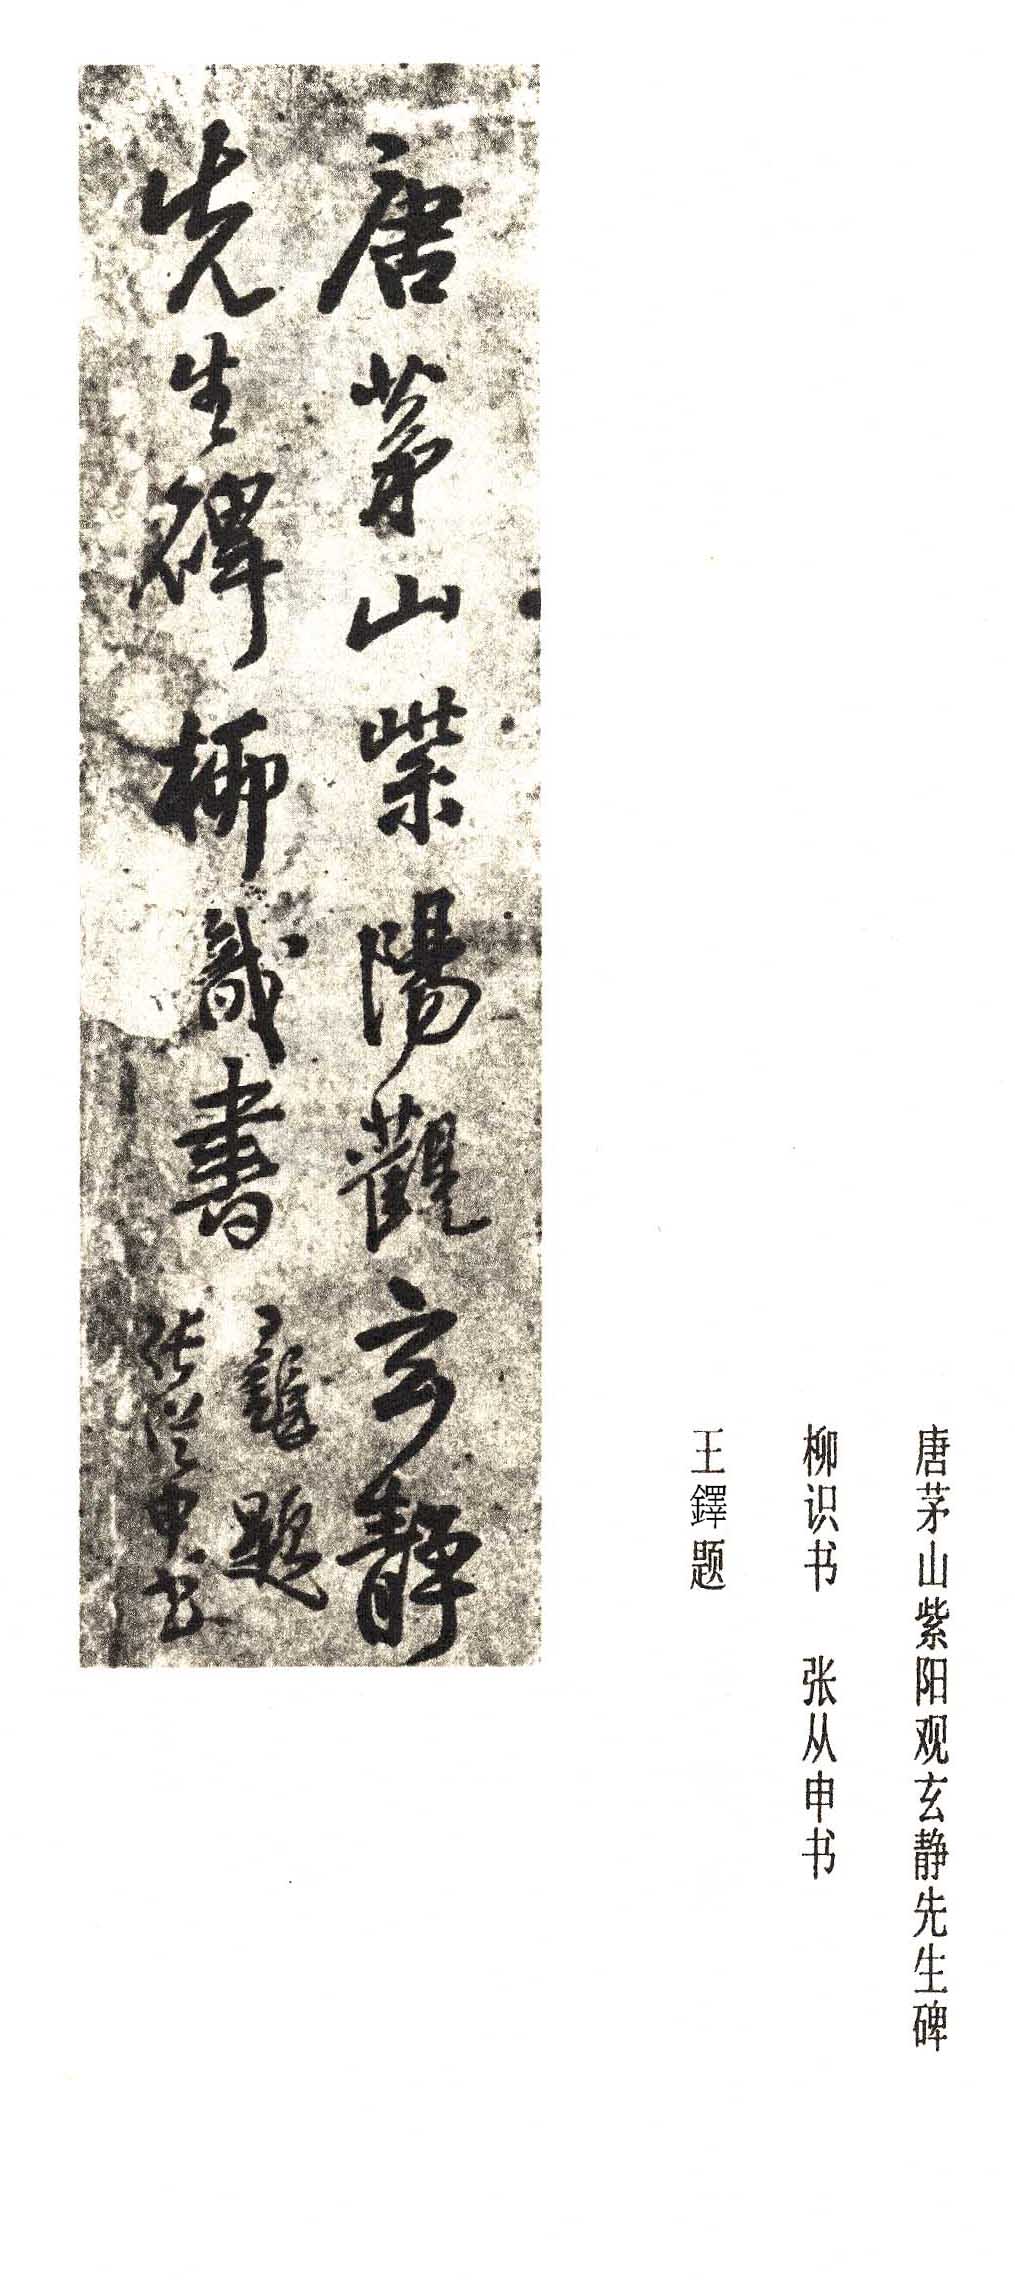 唐茅山紫阳观玄静先生碑
柳识书 张从申书
王鐸题
唐茅山紫陽觀玄靜
先生碑柳識書
王鐸題
張從申书